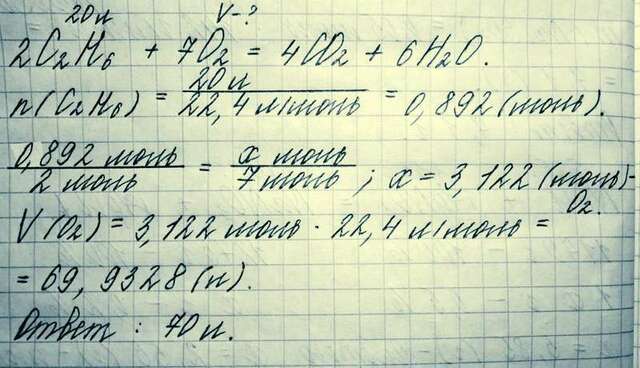 20л V-?
2C₂H₆ + 7O₂ = 4CO₂ + 6H₂O.
n(C₂H₆) = 20 л / 22,4 л/моль = 0,892 (моль).
0,892 моль / 2 моль = x моль / 7 моль ; x = 3,122 (моль)-
O₂.
V(O₂) = 3,122 моль · 22,4 л/моль =
= 69,9328 (л).
Ответ : 70 л.